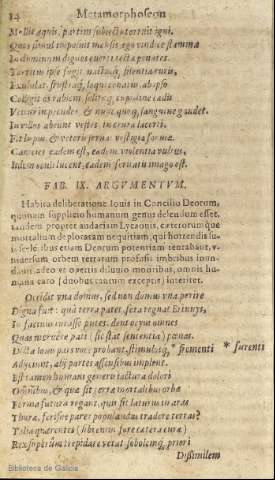 14 Metamorphoseon
Mollit aquis, partim subiecto torruit igni.
Quos simul imposuit mensis, ego vindice flamma
In dominum dignosque euerti tecta penates.
Territus ipse fugit nactusque silentia ruris,
Exululat, frustraque loqui conatur. ab ipso
Colligit os rabiem, solitaeque cupidine caedis
Vertitur in pecudes: & nunc quoque sanguine gaudet.
In villos abeunt vestes, in crura lacerti.
Fit lupus, & veteris seruat vestigia formae.
Canities eadem est, eadem violentia vultus,
Iidem oculi lucent, eadem imago est.
FAB. IX. ARGVMENTVM.
Habita deliberatione Iouis in Concilio Deorum,
quonam supplicio humanum genus delendum esset,
tandem propter audaciam Lycaonis, caeterorumque
mortalium deploratam nequitiam, qui
Deorum potentiam tentabant,
orbem terrarum profusis imbribus
adeo diluuio omnibus, omnis
caro (duobus tantum exceptis) interiret.
Occidit vna domus, sed non domus vna perire
Digna fuit: qua terra patet, fera regnat Erinnys,
In facinus iurasse putes. dent ocyus omnes
Quas meruere pati (sic stat sententia) poenas.
Dicta Iouis pars voce probant, stimulosque * frementi * furenti
Adijciunt, alij partes assensibus implent.
Est tamen humani generis iactura dolori
Omnibus, & quae sit terrae mortalibus orbae
Forma futura rogant, quis sit laturus in aras
Thura, ferisne paret populandas tradere terras?
Talia quaerentes (sibi enim fore caetera curae)
Rex superûm trepidare vetat sobolemque priori
Dissimilem
Biblioteca de Galicia